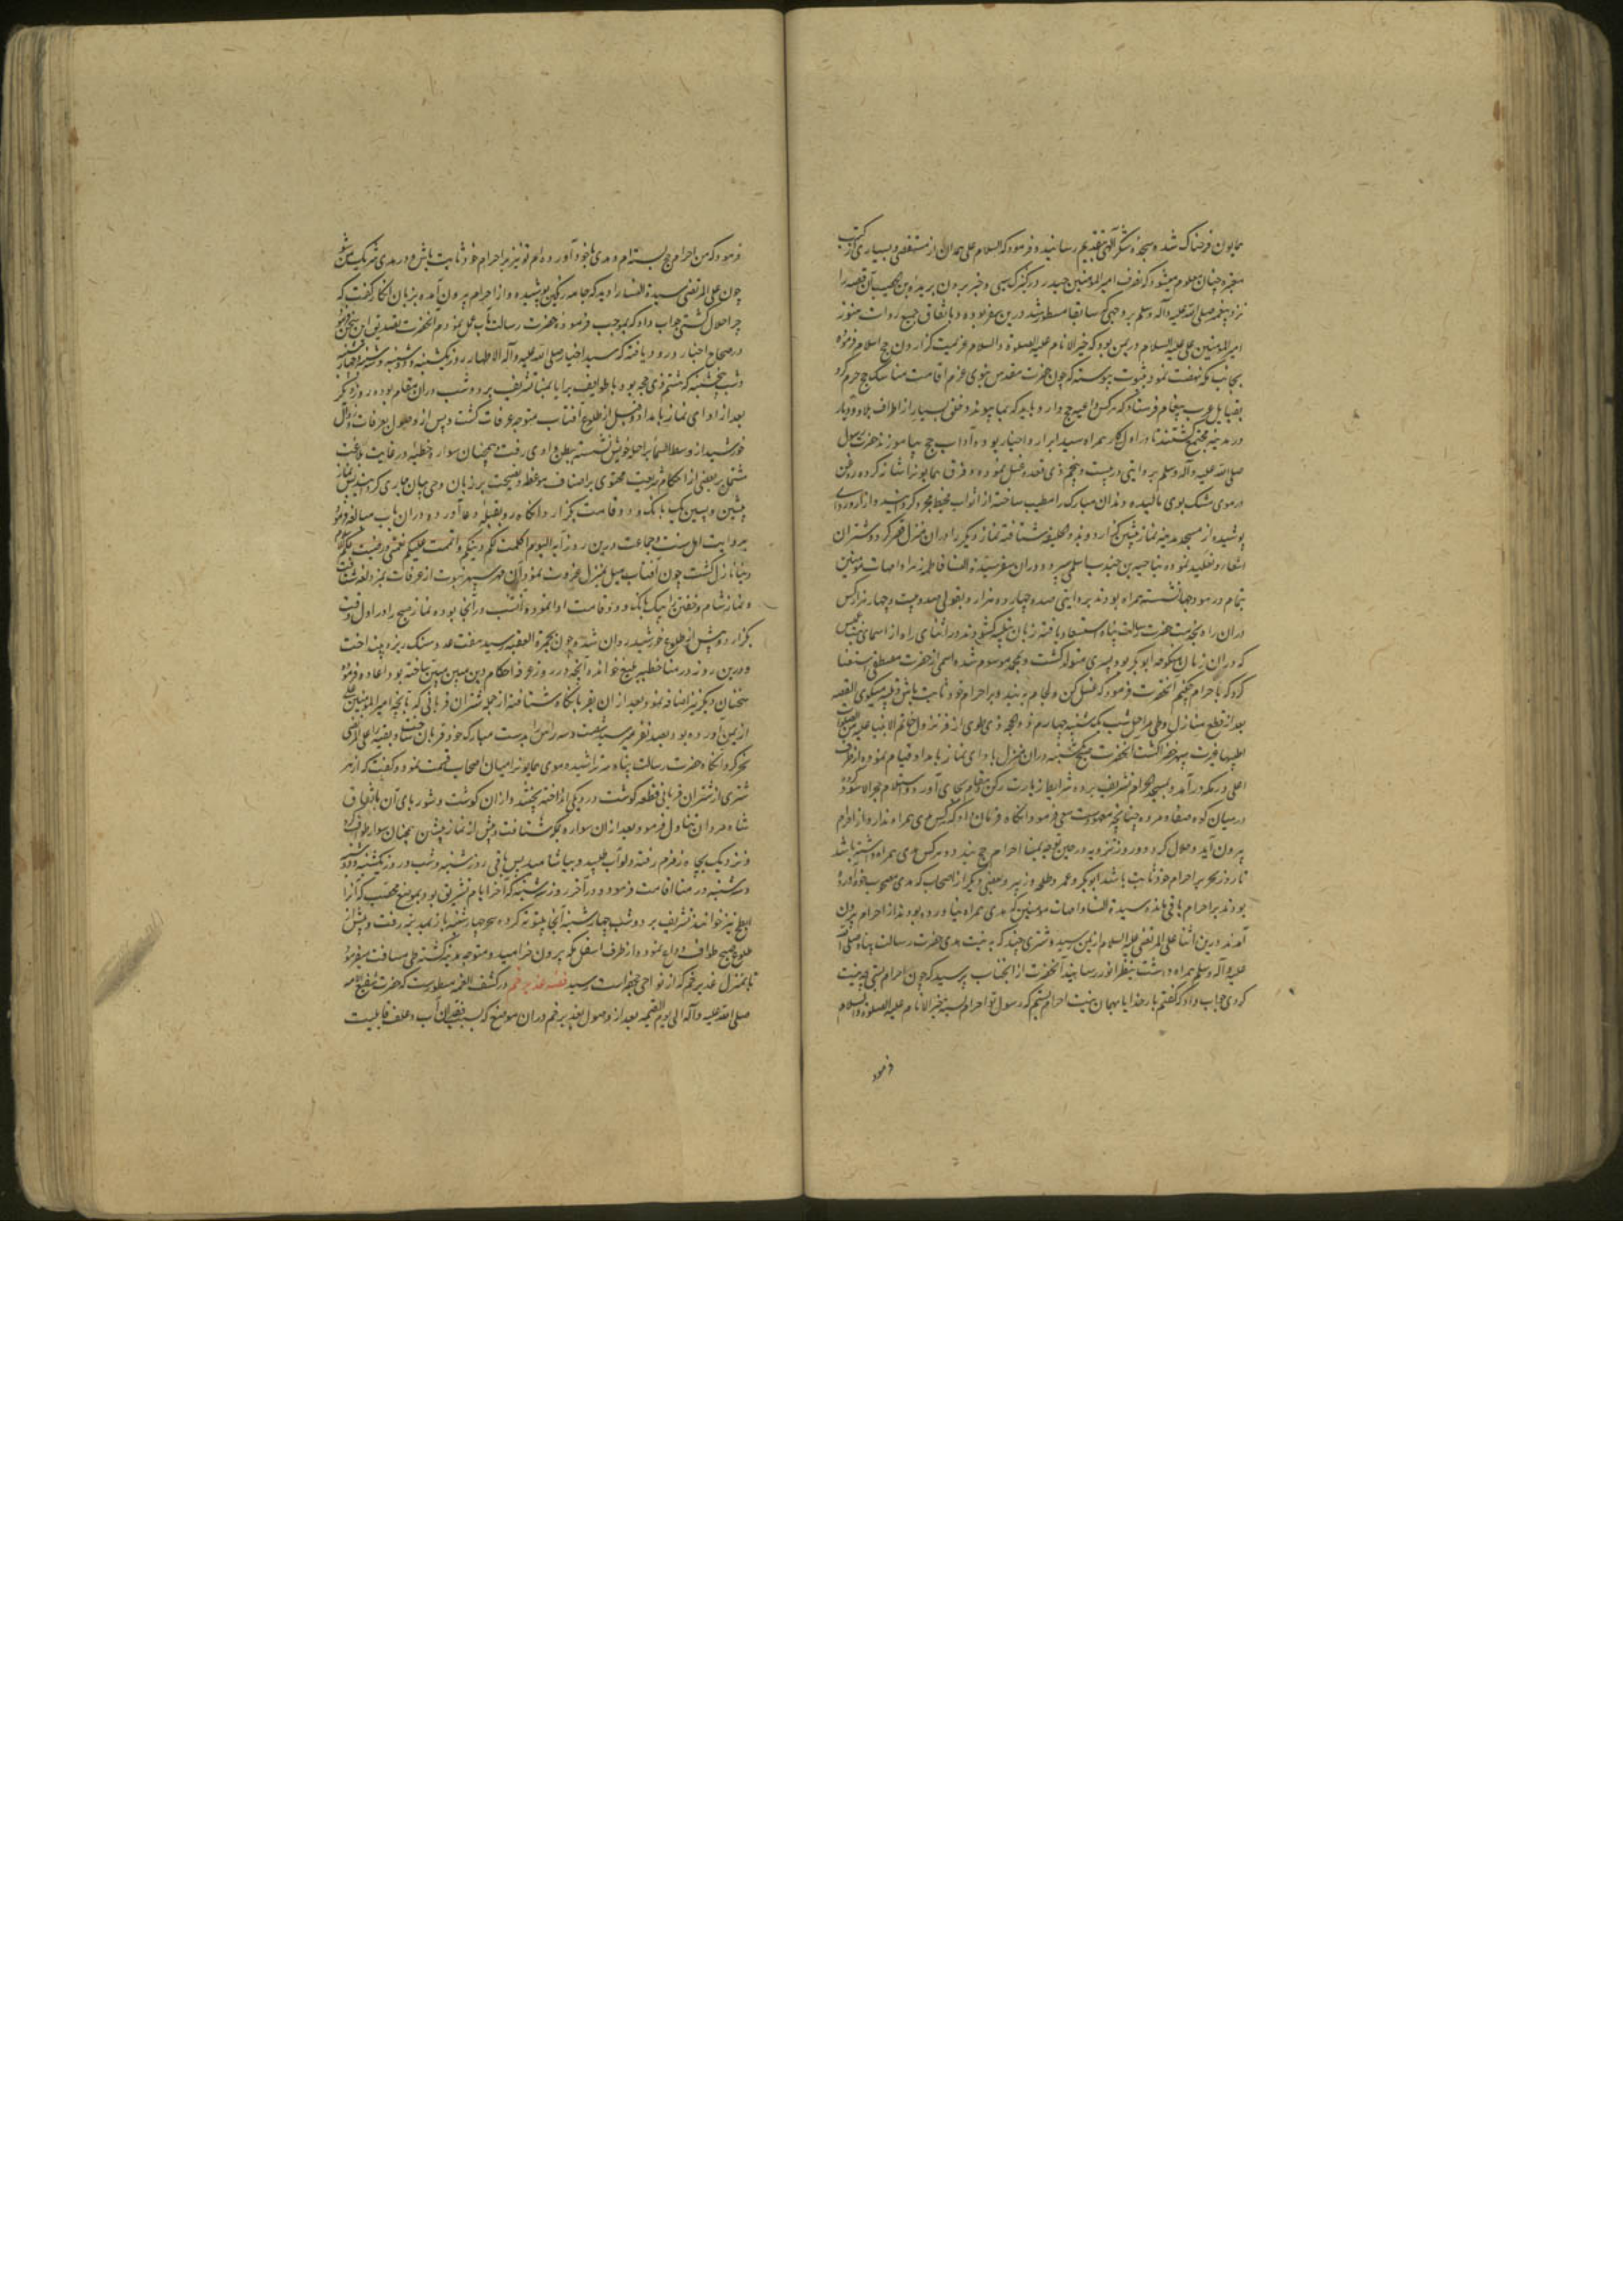 همایون فرحناک شد و سجده شکر الهی بتقدیم رسانید و فرمود که السلام علی همدان از مستقصی و بسیاری از کتب
معتبره چنان معلوم میشود که تصرف امیرالمومنین حیدر در کنیزک سبی و خبر بردن بریده بن حصیب آن قصه را
نزد پیغمبر صلی الله علیه و آله وسلم بر وجهی که سابقا مسطور شد درین سفر بوده و باتفاق جمیع روات هنوز
امیرالمومنین علی علیه السلام در یمن بود که خیرالانام علیه الصلوة والسلام عزیمت گزاردن حج اسلام فرموده
بجانب مکه نهضت نمود بثبوت پیوسته که چون حضرت مقدس نبوی عزم اقامت مناسک حج جزم کرد
بقبایل عرب پیغام فرستاد که هرکس داعیه حج دارد باید که بما پیوندد خلقی بسیار از اطراف بلاد و دیار
در مدینه مجتمع گشتند تا در اول کار همراه سید ابرار و اخیار بوده آداب حج بیاموزند حضرت رسول
صلی الله علیه و آله وسلم بروایتی در بیست و پنجم ذی قعده غسل نموده و فرق همایون را شانه کرده و روغن
در موی مشک بوی مالیده و بدن مبارک را مطیب ساخته از اثواب مخیط مجرد گردانید و ازار و ردای
پوشیده از مسجد مدینه نماز پیشین گزارد و بذو الحلیفه شتافته نماز دیگر را در آن منزل قصر کرد و شتران
اشعار و تقلید نموده بناجیه بن جندب اسلمی سپرد و در آن سفر سیدة النسا فاطمه زهرا و امهات مومنین
بتمام در هودجها نشسته همراه بودند بروایتی صد و چهارده هزار و بقولی صد و بیست و چهار هزار کس
در آن راه بخدمت حضرت رسالت پناه استسعاد یافته زبان بتلبیه گشودند در اثنای راه از اسمای بنت عمیس
که در آن زمان منکوحه ابوبکر بود پسری متولد گشت و بمحمد موسوم شده اسمی از حضرت مصطفی استفتا
کرد که با احرام چکنم آنحضرت فرمود که غسل کن و لجام بربند و بر احرام خود ثابت باش و تلبیه میگوی القصه
بعد از قطع منازل و طی مراحل شب یکشنبه چهارم ذو الحجه ذی طوی از فر نزول خاتم الانبیا علیه من الصلوات
اطیبها غیرت سپهر خضرا گشت آنحضرت صبح یکشنبه در آن منزل بادای نماز بامداد قیام نموده از طرف
اعلی در مکه درآمد و بمسجد الحرام تشریف برده شرایط زیارت رکن و مقام بجای آورد و استلام حجرالاسود کرده
در میان کوه صفا و مروه چنانچه معهودست سعی فرمود آنگاه فرمان داد که هرکس هدی همراه ندارد از احرام
بیرون آید و حلال گردد و روز ترویه در حین توجه بمنا احرام حج بندد و هرکس هدی همراه داشته باشد
تا روز نحر بر احرام خود ثابت باشد ابوبکر و عمر و طلحه و زبیر و بعضی دیگر از اصحاب که هدی مصحوب خود آورده
بودند بر احرام باقی ماندند و سیدة النسا و امهات مومنین که هدی همراه نیاورده بودند از احرام بیرون
آمدند درین اثنا علی المرتضی علیه السلام از یمن رسید و شتری چند که به نیت هدی حضرت رسالت پناه صلی الله
علیه و آله وسلم همراه داشت بنظر انور رسانید آنحضرت از آنجناب پرسید که چون احرام بستی چه نیت
کردی جواب داد که گفتم بار خدایا بهمان نیت احرام بستم که رسول تو احرام بسته خیرالانام علیه الصلوة والسلام
فرمود
فرمود که من احرام حج بسته‌ام و هدی با خود آورده‌ام تو نیز بر احرام خود ثابت باش و در هدی شریک من شو
چون علی المرتضی سیدة النسا را دید که جامه رنگین پوشیده و از احرام بیرون آمده بزبان انکار گفت که
چرا حلال گشتی جواب داد که بموجب فرموده حضرت رسالت مآب عمل نمودم آنحضرت تصدیق این سخن فرمود
در صحاح اخبار ورود یافته که سید اخیار صلی الله علیه و آله الاطهار روز یکشنبه و دوشنبه و سه شنبه و چهارشنبه
و شب پنجشنبه که هشتم ذی حجه بود با طوایف برایا بمنا تشریف برد و شب در آن مقام بوده روز دیگر
بعد از ادای نماز بامداد و قبل از طلوع آفتاب متوجه عرفات گشت و پس از وصول بعرفات و زوال
خورشید از وسط السما بر احله خویش نشسته ببطن وادی رفت و همچنان سوار خطبه در غایت بلاغت
مشتمل بر بعضی از احکام شریعت محتوی بر اصناف موعظه و نصیحت بر زبان وحی بیان جاری گردانید پس نماز
پیشین و پسین بیک بانگ و دو قامت بگزارد آنگاه رو بقبله دعا آورده در آن باب مبالغه فرمود
بروایت اهل سنت و جماعت درین روز آیه الیوم اکملت لکم دینکم و اتممت علیکم نعمتی و رضیت لکم الاسلام
دینا نازل گشت چون آفتاب میل بمنزل غروب نمود آن مهر سپهر نبوت از عرفات بمزدلفه شتافت
و نماز شام و خفتن را بیک بانگ و دو قامت ادا نمود و آنشب در آنجا بوده نماز صبح را در اول وقت
بگزارد و پیش از طلوع خورشید روان شد و چون بجمرة العقبه رسید هفت عدد سنگ ریزه بینداخت
و درین روز در منا خطبه بلیغ خوانده آنچه در روز عرفه از احکام دین مبین مبین ساخته بود اعاده فرموده
سخنان دیگر نیز اضافه نمود و بعد از آن بقربانگاه شتافته از جمله شتران قربانی که با آنچه امیرالمومنین علی
از یمن آورده بود بصد نفر میرسید شصت و سه راس را بدست مبارک خود قربان ساخت و بقیه را علی المرتضی
نحر کرد آنگاه حضرت رسالت پناه سر تراشیده موی همایون را میان اصحاب قسمت نمود و گفت که از هر
شتری از شتران قربانی قطعه گوشت در دیکی انداخته پختند و از آن گوشت و شوربای آن باتفاق
شاه مردان تناول فرمود و بعد از آن سواره بمکه شتافت و پیش از نماز پیشین همچنان سوار طواف کرد
و نزدیک بچاه زمزم رفته دلو آب طلبید و بیاشامید پس باقی روز شنبه و شب و روز یکشنبه و دوشنبه
و سه شنبه در منا اقامت فرمود و در آخر روز سه شنبه که آخر ایام تشریق بود بموضع محصب که آنرا
ابطح نیز خوانند تشریف برد و شب چهارشنبه آنجا بیتوته کرده سحر چهارشنبه باز بمکه رفت و پیش از
طلوع صبح طواف وداع نمود و از طرف اسفل مکه بیرون خرامید و متوجه مدینه گشته طی مسافت میفرمود
تا بمنزل غدیر خم که از نواحی جحفه است رسید قصه غدیر خم در کشف الغمه مسطورست که حضرت شفیع الامه
صلی الله علیه و آله الی یوم القیمه بعد از وصول بغدیر خم در آن موضع که بسبب فقدان آب و علف قابلیت